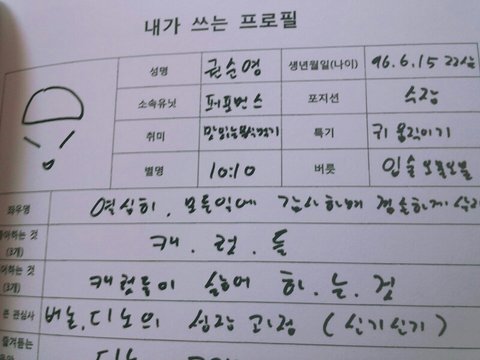 내가 쓰는 프로필
성명 권순영 생년월일(나이) 96.6.15 22살
소속유닛 퍼포먼스 포지션
취미 맛있는음식먹기 특기 귀 움직이기
별명 10:10 버릇 입술 오물오물
좌우명 열심히, 모든일에 감사하며 겸손하게
하는 것 (3개) 캐.럿.들
하는 것 (3개) 캐럿들이 싫어 하.는.것
관심사 버논,디노의 성장 과정 (신기신기)
즐겨듣는
디노